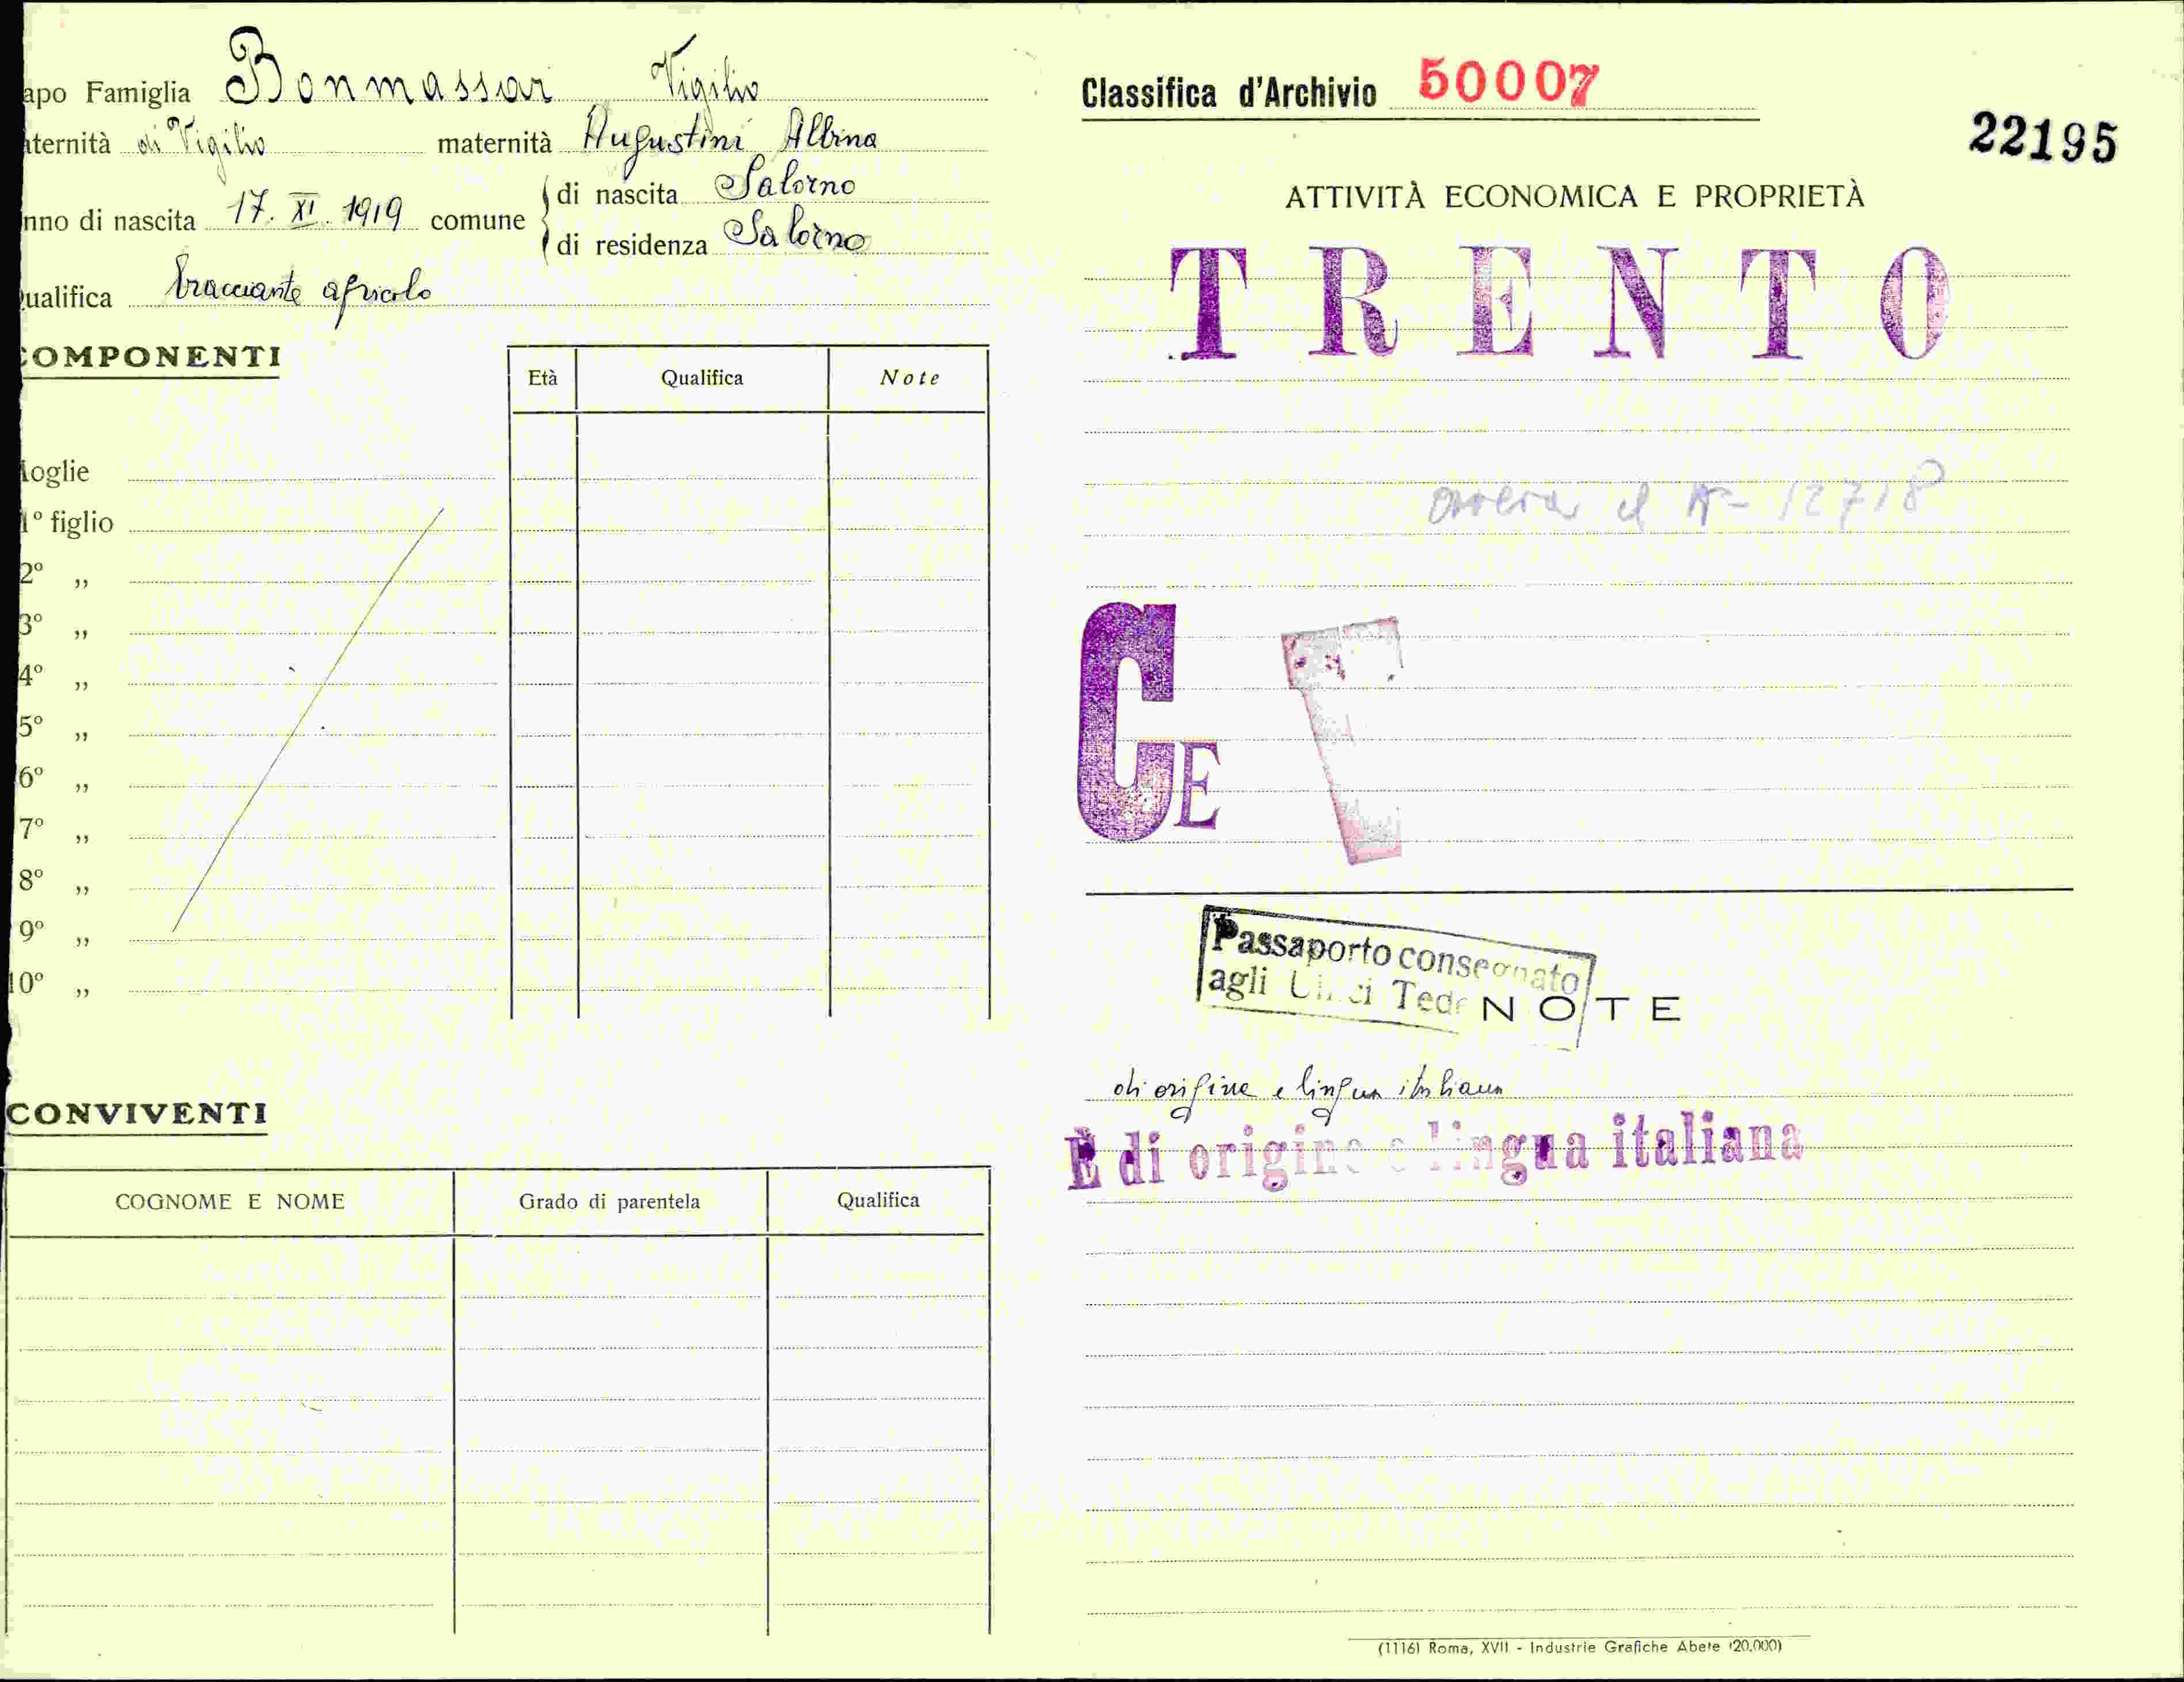 apo Famiglia Bonmassar Vigilio
aternità di Vigilio maternità Augustini Albina
nno di nascita 17. XI. 1919 comune di nascita Salorno
di residenza Salorno
ualifica bracciante agricolo
COMPONENTI
Età Qualifica Note
oglie
1º figlio
2º „
3º „
4º „
5º „
6º „
7º „
8º „
9º „
10º „
CONVIVENTI
COGNOME E NOME Grado di parentela Qualifica
Classifica d'Archivio 50007
22195
ATTIVITÀ ECONOMICA E PROPRIETÀ
TRENTO
el Nº 12718
CE
Passaporto consegnato
agli
NOTE
di origine e lingua italiana
È di origine e lingua italiana
(1116) Roma, XVII - Industrie Grafiche Abete (20.000)